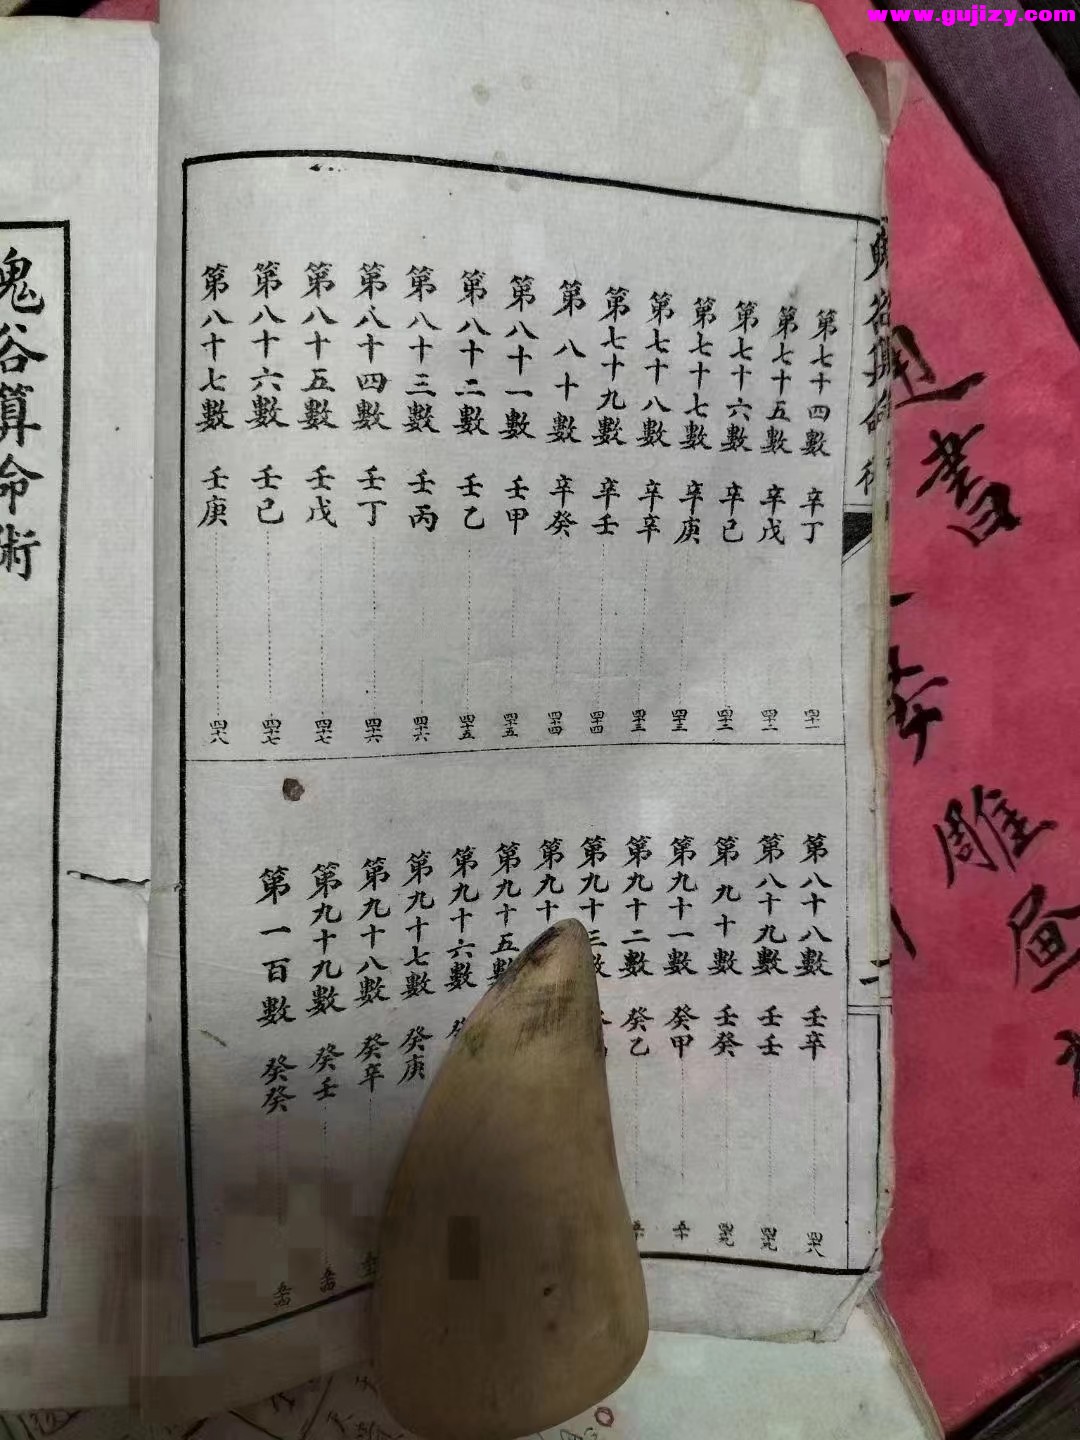 www.gujizy.com
第七十四數 辛丁 四十一
第七十五數 辛戊 四十二
第七十六數 辛己 四十二
第七十七數 辛庚 四十三
第七十八數 辛辛 四十三
第七十九數 辛壬 四十四
第八十數 辛癸 四十四
第八十一數 壬甲 四十五
第八十二數 壬乙 四十五
第八十三數 壬丙 四十六
第八十四數 壬丁 四十六
第八十五數 壬戊 四十七
第八十六數 壬己 四十七
第八十七數 壬庚 四十八
第八十八數 壬辛 四十八
第八十九數 壬壬 四十九
第九十數 壬癸 四十九
第九十一數 癸甲 五十
第九十二數 癸乙 五十
第九十三數
第九十
第九十五數
第九十六數
第九十七數 癸庚
第九十八數 癸辛
第九十九數 癸壬 五十四
第一百數 癸癸 五十四
鬼谷算命術
書
雕